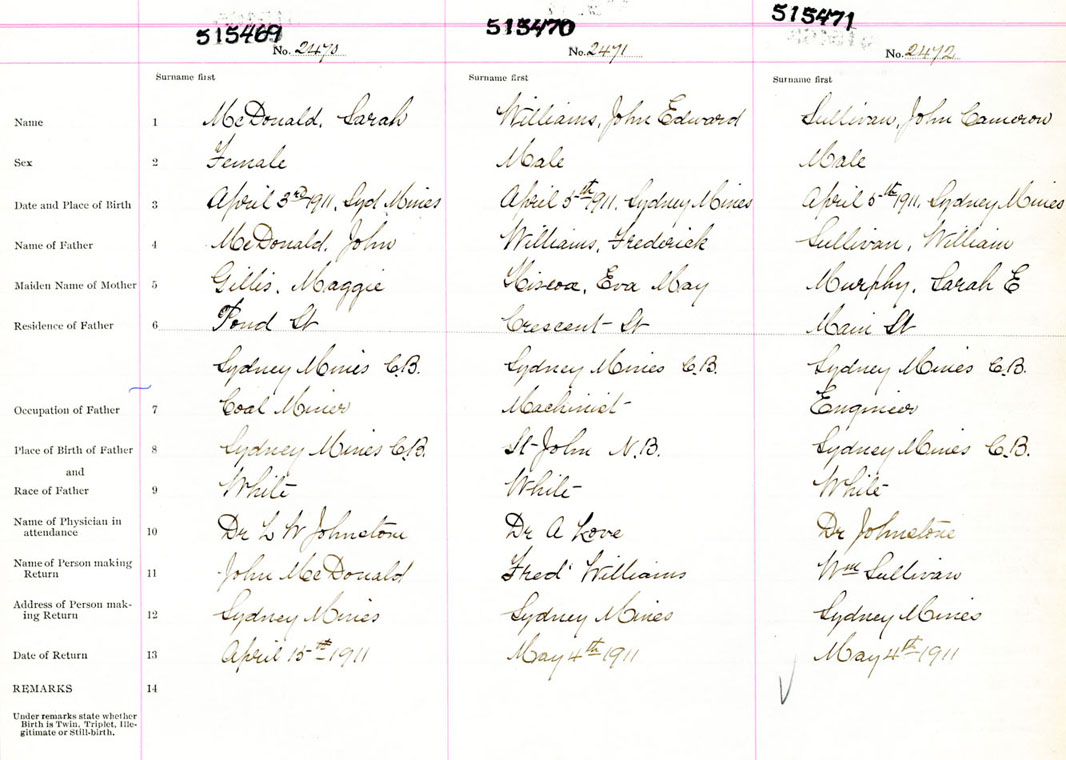 515469 515470 515471
No. 2470 No. 2471 No. 2472
Surname first Surname first Surname first
Name 1 McDonald, Sarah Williams, John Edward Sullivan, John Cameron
Sex 2 Female Male Male
Date and Place of Birth 3 April 3rd 1911, Syd Mines April 5th 1911. Sydney Mines April 5th 1911, Sydney Mines
Name of Father 4 McDonald, John Williams, Frederick Sullivan, William
Maiden Name of Mother 5 Gillis, Maggie Eva May Murphy, Sarah E
Residence of Father 6 Pond St Crescent St Main St
Sydney Mines C.B. Sydney Mines C.B. Sydney Mines C.B.
Occupation of Father 7 Coal Miner Machinist Engineer
Place of Birth of Father 8 Sydney Mines C.B. St John N.B. Sydney Mines C.B.
and
Race of Father 9 White White White
Name of Physician in
attendance 10 Dr L W Johnstone Dr A Love Dr Johnstone
Name of Person making
Return 11 John McDonald Fred Williams Wm Sullivan
Address of Person mak-
ing Return 12 Sydney Mines Sydney Mines Sydney Mines
Date of Return 13 April 15th 1911 May 4th 1911 May 4th 1911
REMARKS 14
Under remarks state whether
Birth is Twin, Triplet, Ille-
gitimate or Still-birth.